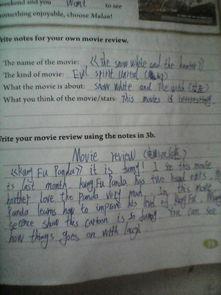 weekend and you want to see
something enjoyable, choose Mulan!
Write notes for your own movie review.
The name of the movie: 《the snow white and the hunter》
The kind of movie: Evil spirit
What the movie is about: snow white and the
What you think of the movie/stars: This movie is interesting
Write your movie review using the notes in 3b.
Movie review
《Kung Fu Panda》 it is funny I see this movie
is last month. kung Fu Panda has two
love the Panda very much. In this movie
Panda learns how to improve his kind of kung Fu.
show this cartoon is so funny. You can see
how things goes on with